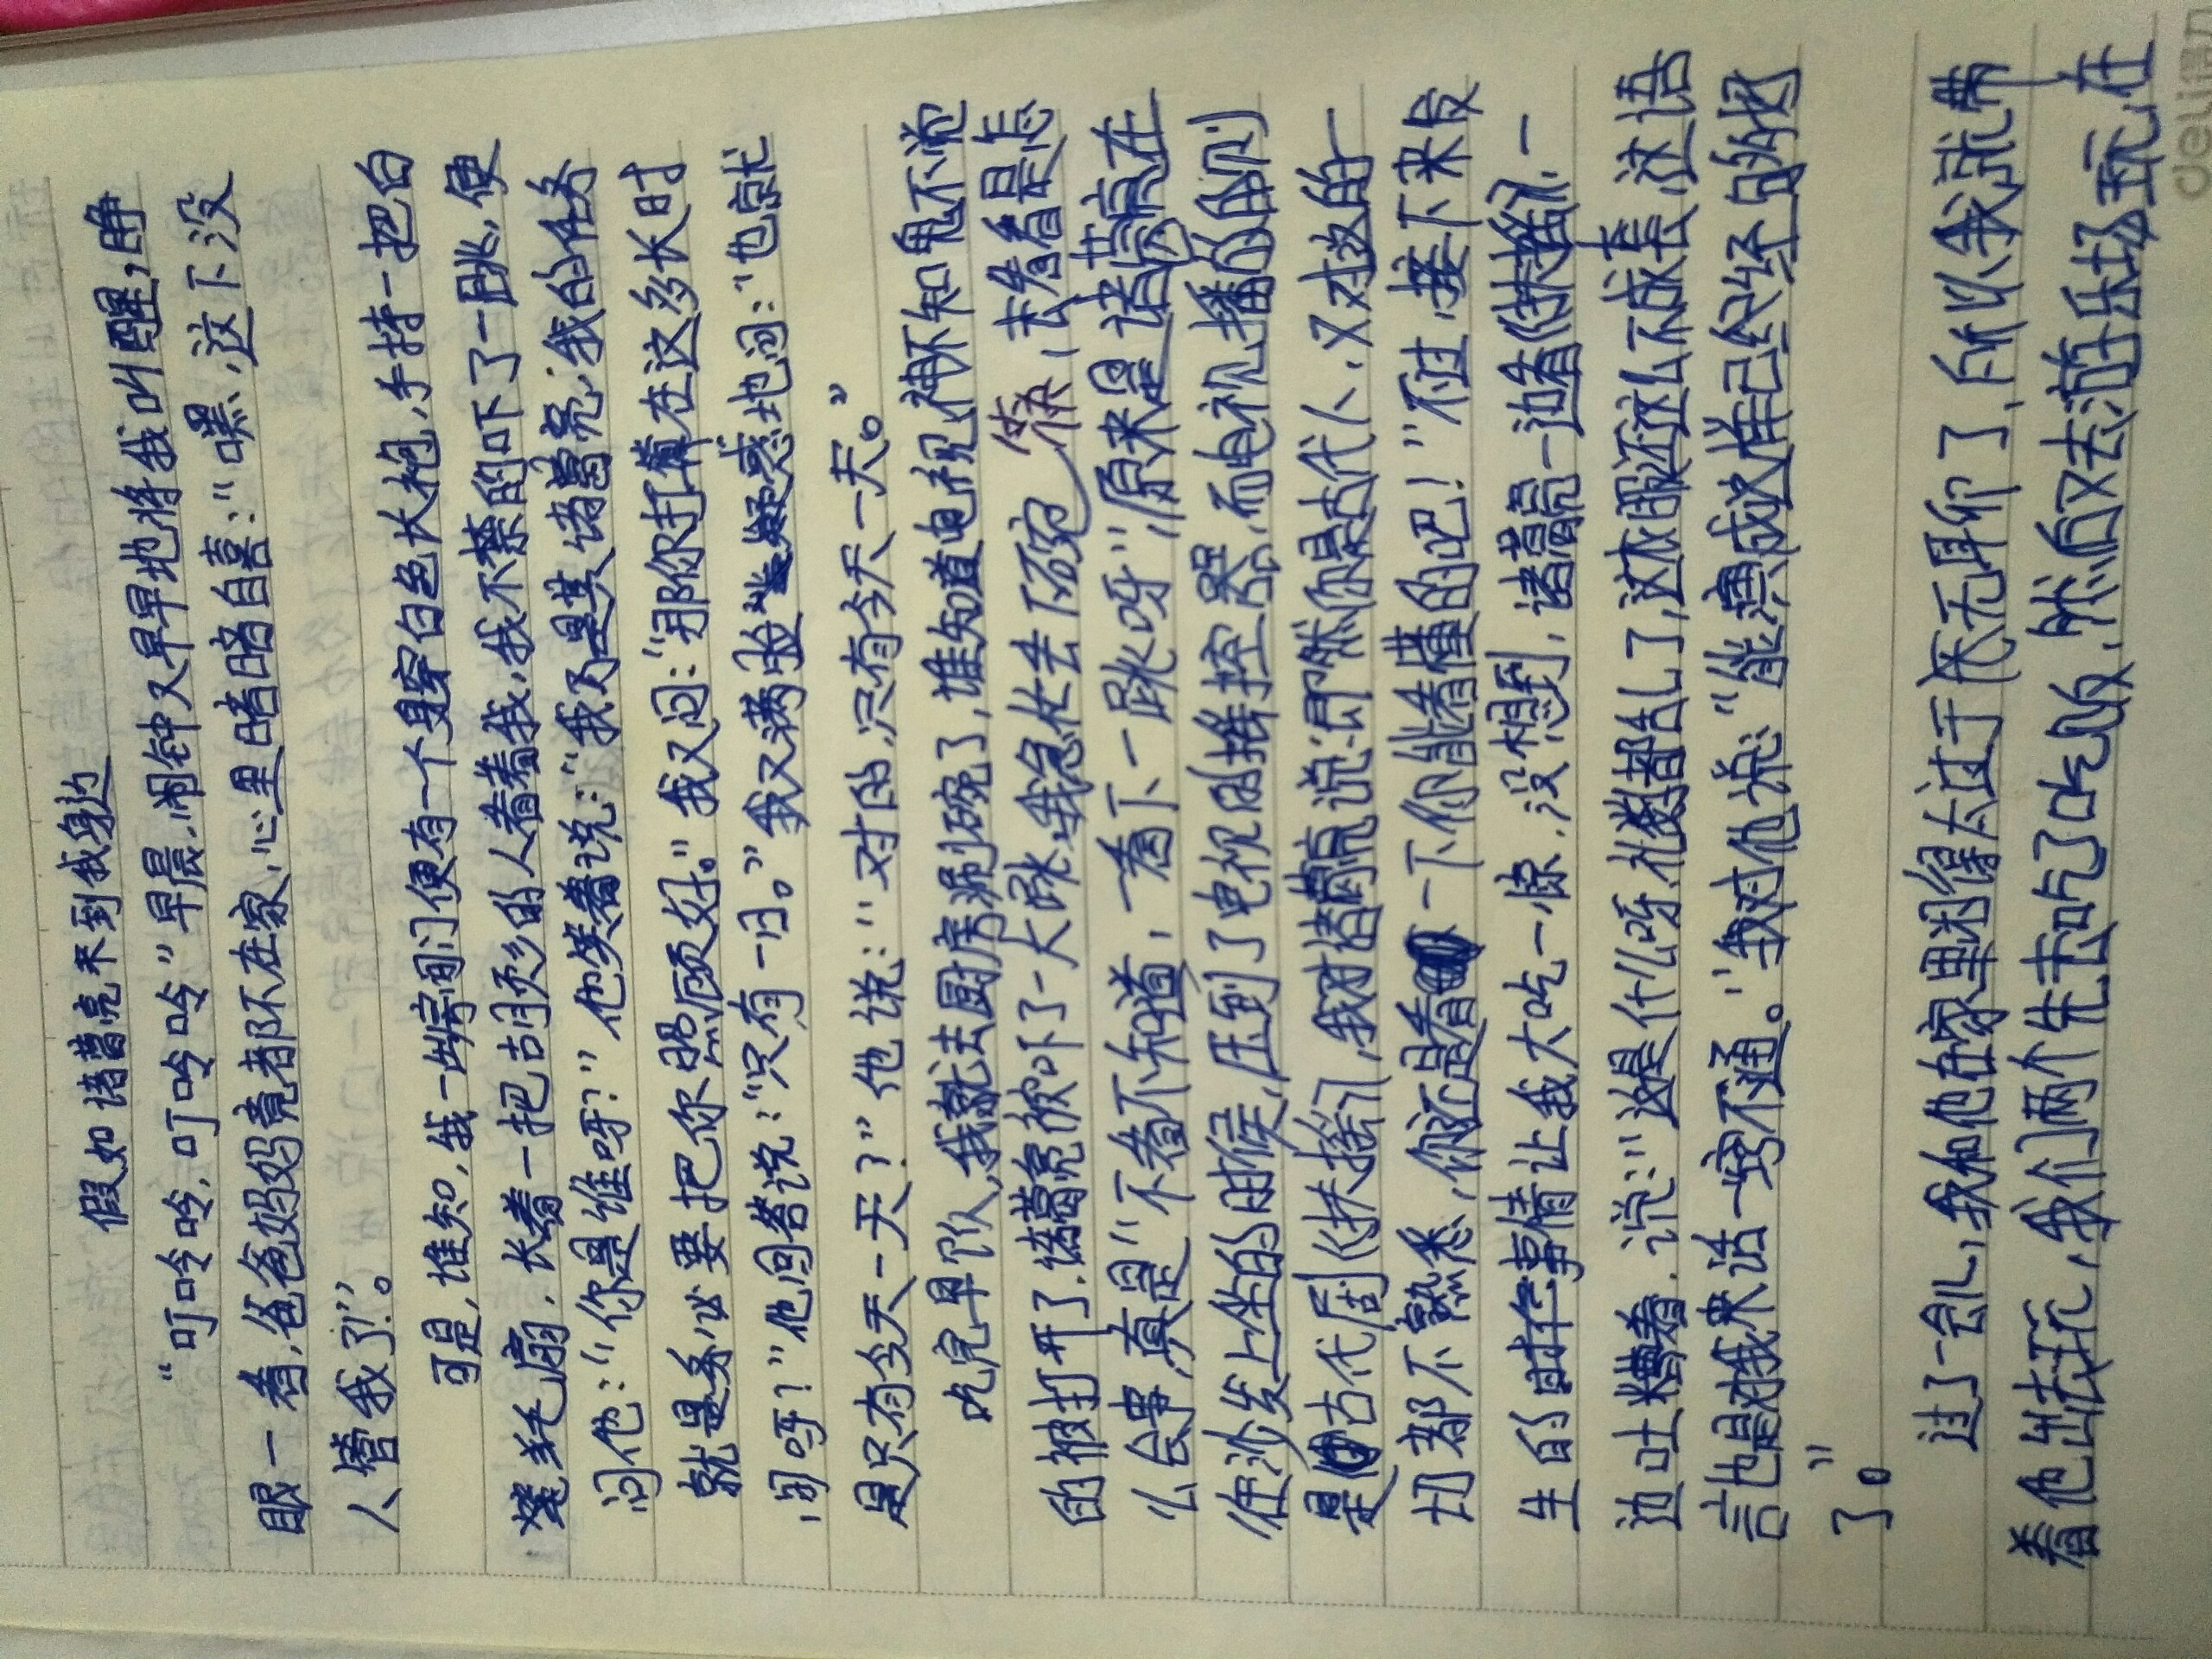 假如诸葛亮来到我身边
“叮呤呤,叮呤呤”早晨,闹钟又早早地将我叫醒,睁
眼一看,爸爸妈妈竟都不在家,心里暗暗自喜:“嘿,这下没
人管我了!”。
可是,谁知,我一出房间门便有一个身穿白色长袍,手持一把白
色羊毛扇,长着一把胡须的人看着我,我不禁的吓了一跳,便
问他:“你是谁呀?”他笑着说:“我乃是诸葛亮,我的任务
就是要把你照顾好。”我又问:“那你打算在这多长时
间呀?”他回答说:“只有一日。”我又满脸疑惑地问:“也就
是只有今天一天?”他说:“对的,只有今天一天。”
吃完早饭,我就去厨房涮碗了,谁知道电视神不知鬼不觉
的被打开了.诸葛亮被吓了一大跳,我急忙去下碗筷,去看看是怎
么会事,真是“不看不知道,一看下一跳呀”,原来是诸葛亮在
往沙发上坐的时候,压到了电视的摇控器,而电视播的刚刚
是古代剧《扶摇》,我对诸葛亮说:即然你是古代人,又对我的一
切都不熟悉,你还是看一下你能看懂的吧!”不过,接下来发
生的事情让我大吃一惊,没想到,诸葛亮一边看《扶摇》,一
边吐糟着.说:“这是什么呀,礼数都乱了,这衣服还这么不成套,这语
言也是对我来话一窍不通。”我对他说:“能演成这样已经好的
了。”
过了一会儿,我和他在家里觉得太过于无聊了,所以我就带
着他出去玩,我们两个先去吃了吃饭,然后又去游乐场玩,在
deli得力